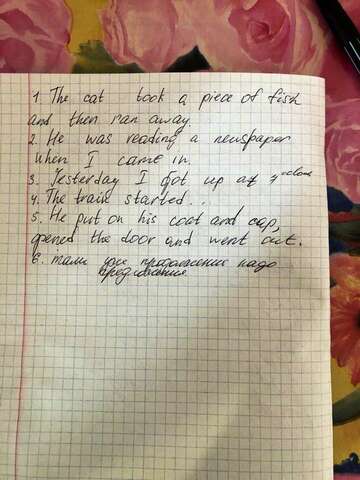 1. The cat took a piece of fish
and then ran away.
2. He was reading a newspaper
when I came in.
3. Yesterday I got up at 7 o'clock
4. The train started...
5. He put on his coat and cap,
opened the door and went out.
6. там уже продолжение надо
предложения